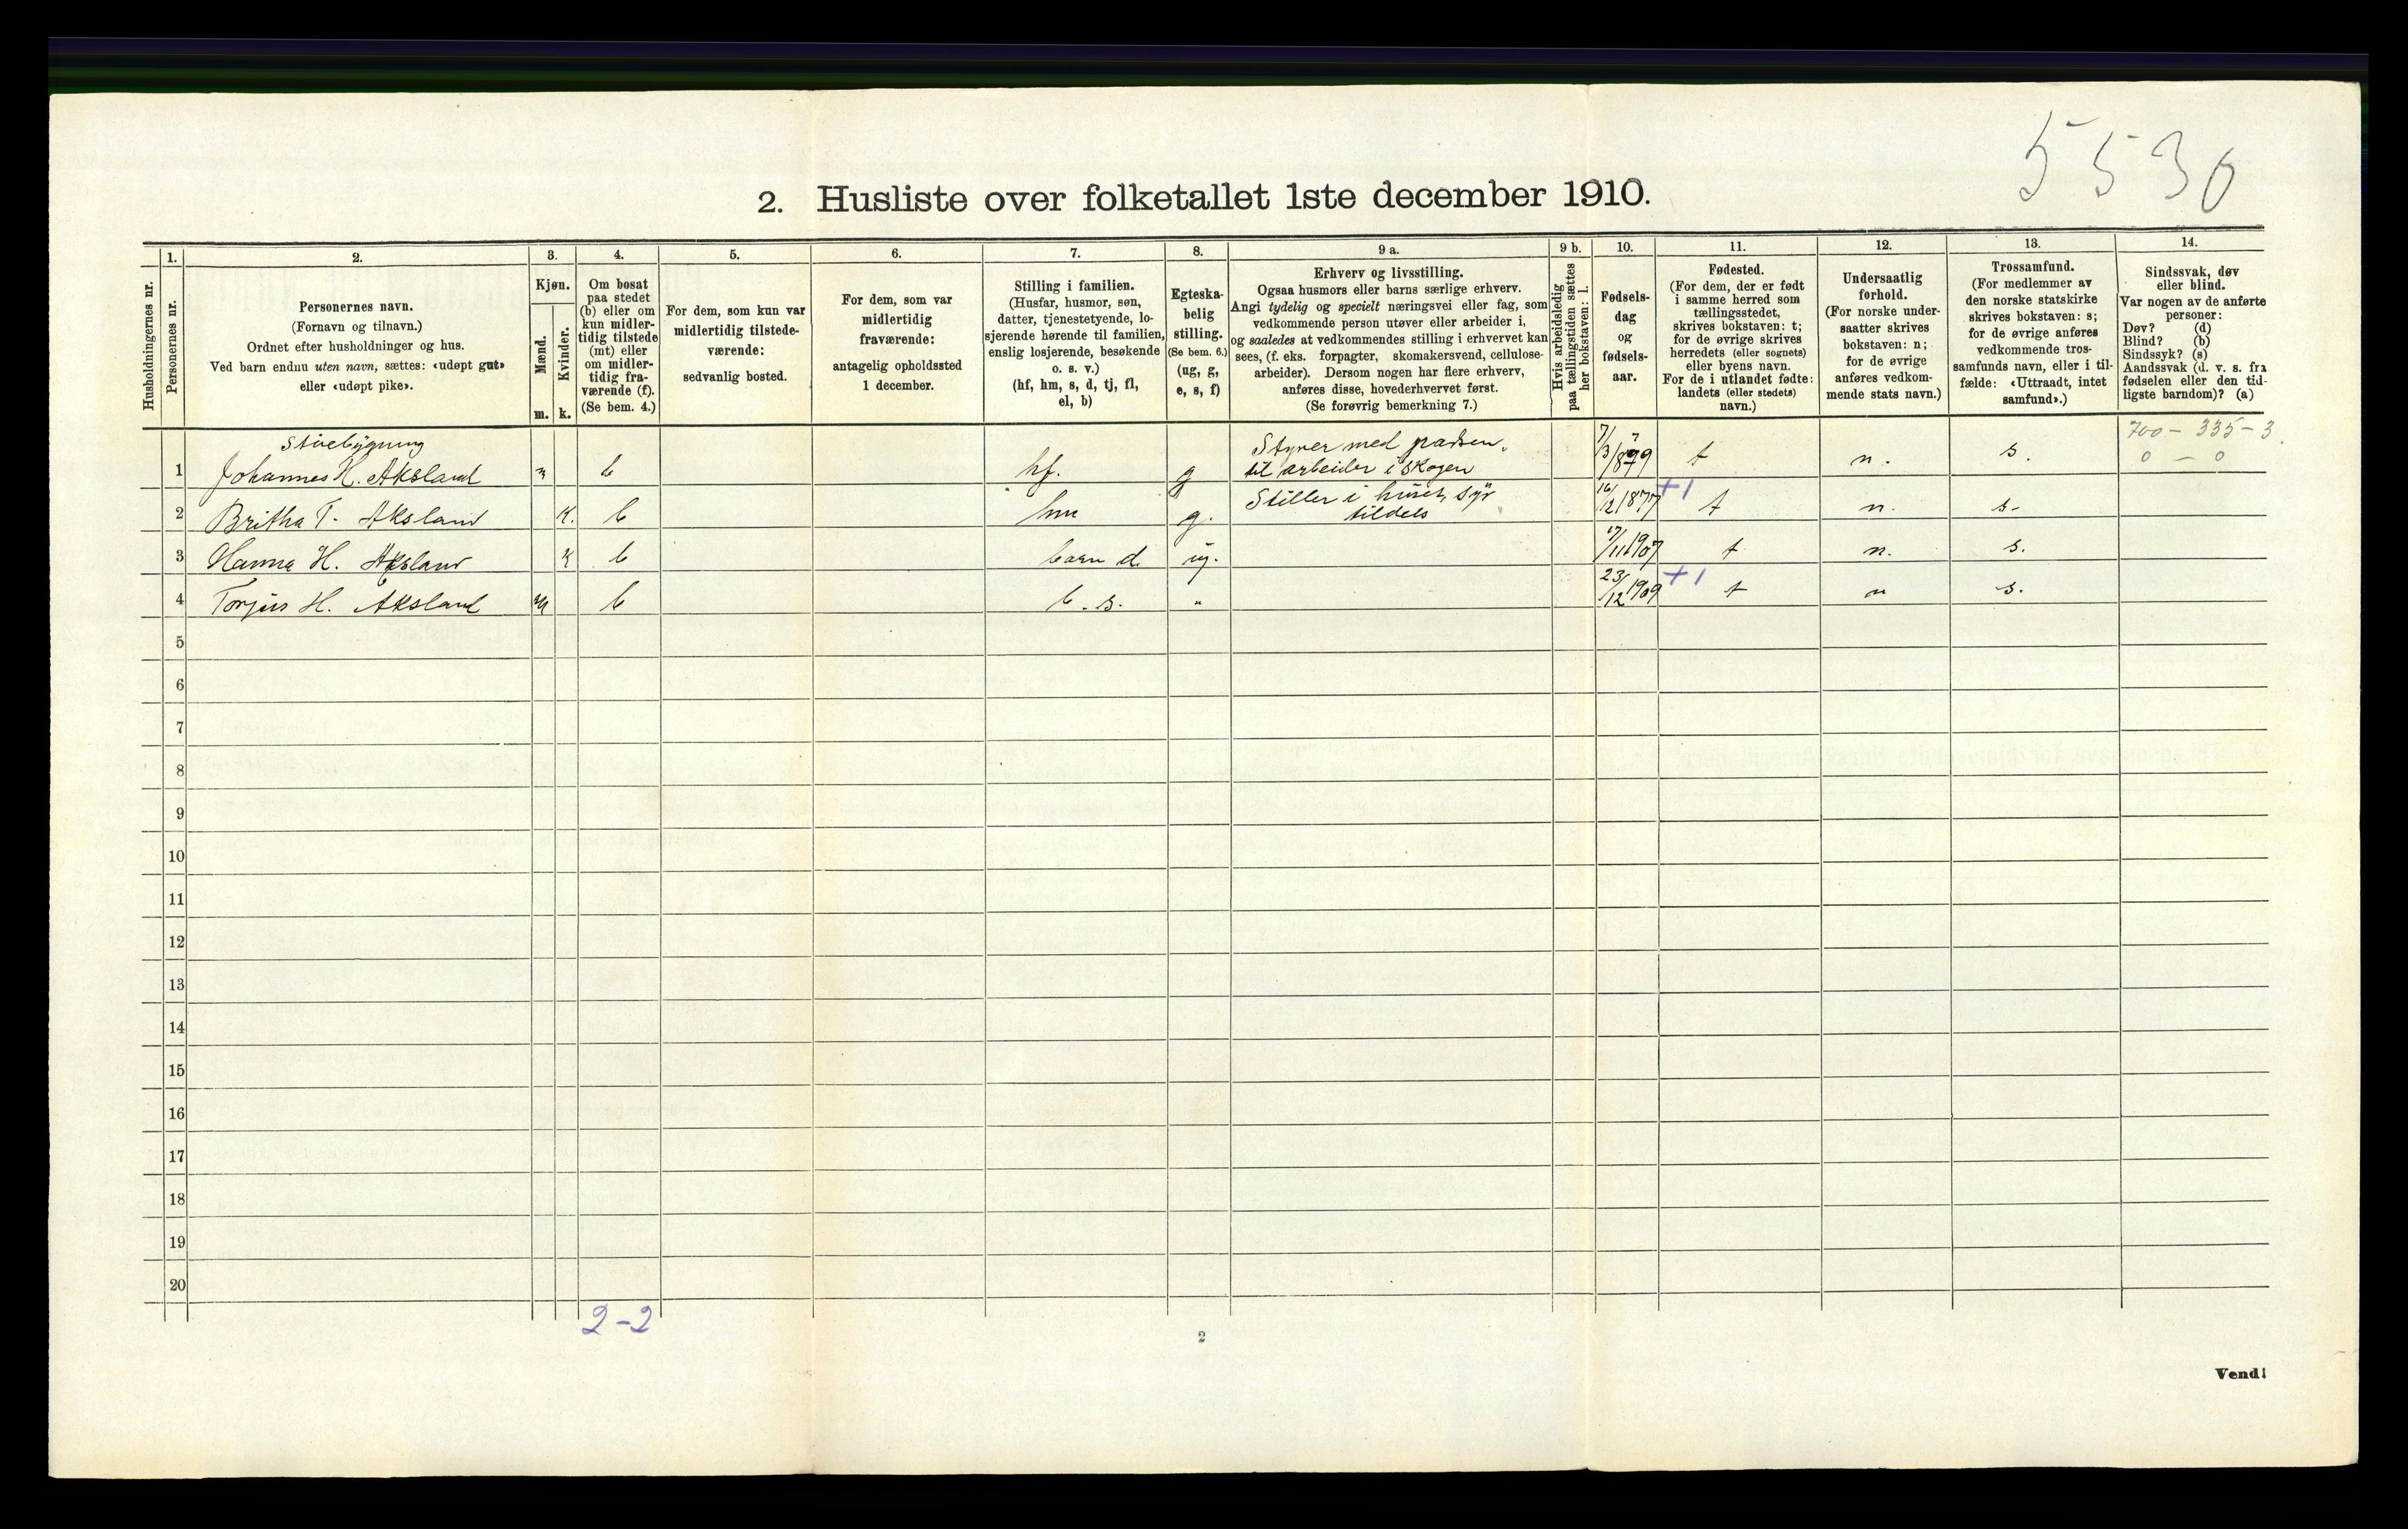 5530
2. Husliste over folketallet 1ste december 1910.
Husholdningernes nr.
1.
Personernes nr.
2.
Personernes navn.
(Fornavn og tilnavn.)
Ordnet efter husholdninger og hus.
Ved barn endnu uten navn, sættes: «udøpt gut»
eller «udøpt pike».
3.
Kjøn.
Mænd.
Kvinder.
m. k.
4.
Om bosat
paa stedet
(b) eller om
kun midler-
tidig tilstede
(mt) eller
om midler-
tidig fra-
værende (f).
(Se bem. 4.)
5.
For dem, som kun var
midlertidig tilstede-
værende:
sedvanlig bosted.
6.
For dem, som var
midlertidig
fraværende:
antagelig opholdssted
1 december.
7.
Stilling i familien.
(Husfar, husmor, søn,
datter, tjenestetyende, lo-
sjerende hørende til familien,
enslig losjerende, besøkende
o. s. v.)
(hf, hm, s, d, tj, fl,
el, b)
8.
Egteska-
belig
stilling.
(Se bem. 6.)
(ug, g,
e, s, f)
9 a.
Erhverv og livsstilling.
Ogsaa husmors eller barns særlige erhverv.
Angi tydelig og specielt næringsvei eller fag, som
vedkommende person utøver eller arbeider i,
og saaledes at vedkommendes stilling i erhvervet kan
sees, (f. eks. forpagter, skomakersvend, cellulose-
arbeider). Dersom nogen har flere erhverv,
anføres disse, hovederhvervet først.
(Se forøvrig bemerkning 7.)
9 b.
Hvis arbeidsledig
paa tællingstiden sættes
her bokstaven: l.
10.
Fødsels-
dag
og
fødsels-
aar.
11.
Fødested.
(For dem, der er født
i samme herred som
tællingsstedet,
skrives bokstaven: t;
for de øvrige skrives
herredets (eller sognets)
eller byens navn.
For de i utlandet fødte:
landets (eller stedets)
navn.)
12.
Undersaatlig
forhold.
(For norske under-
saatter skrives
bokstaven: n;
for de øvrige
anføres vedkom-
mende stats navn.)
13.
Trossamfund.
(For medlemmer av
den norske statskirke
skrives bokstaven: s;
for de øvrige anføres
vedkommende tros-
samfunds navn, eller i til-
fælde: «Uttraadt, intet
samfund».)
14.
Sindssvak, døv
eller blind.
Var nogen av de anførte
personer:
Døv? (d)
Blind? (b)
Sindssyk? (s)
Aandssvak (d. v. s. fra
fødselen eller den tid-
ligste barndom)? (a)
700 - 335 - 3
0 - 0
1 Johannes H. Aksland m b hf. g til arbeider i skogen t n. s.
2 Britha T. Aksland k. b hm g. Steller i huset, syr tildels 16/12 1877 +1 t n. s.
3 Hanna H. Aksland k b barn d. ug. 17/11 1907 t n. s.
4 Torjus H. Aksland m b b. s. " 23/12 1909 +1 t n s.
5
6
7
8
9
10
11
12
13
14
15
16
17
18
19
20
2-2
2
Vend!